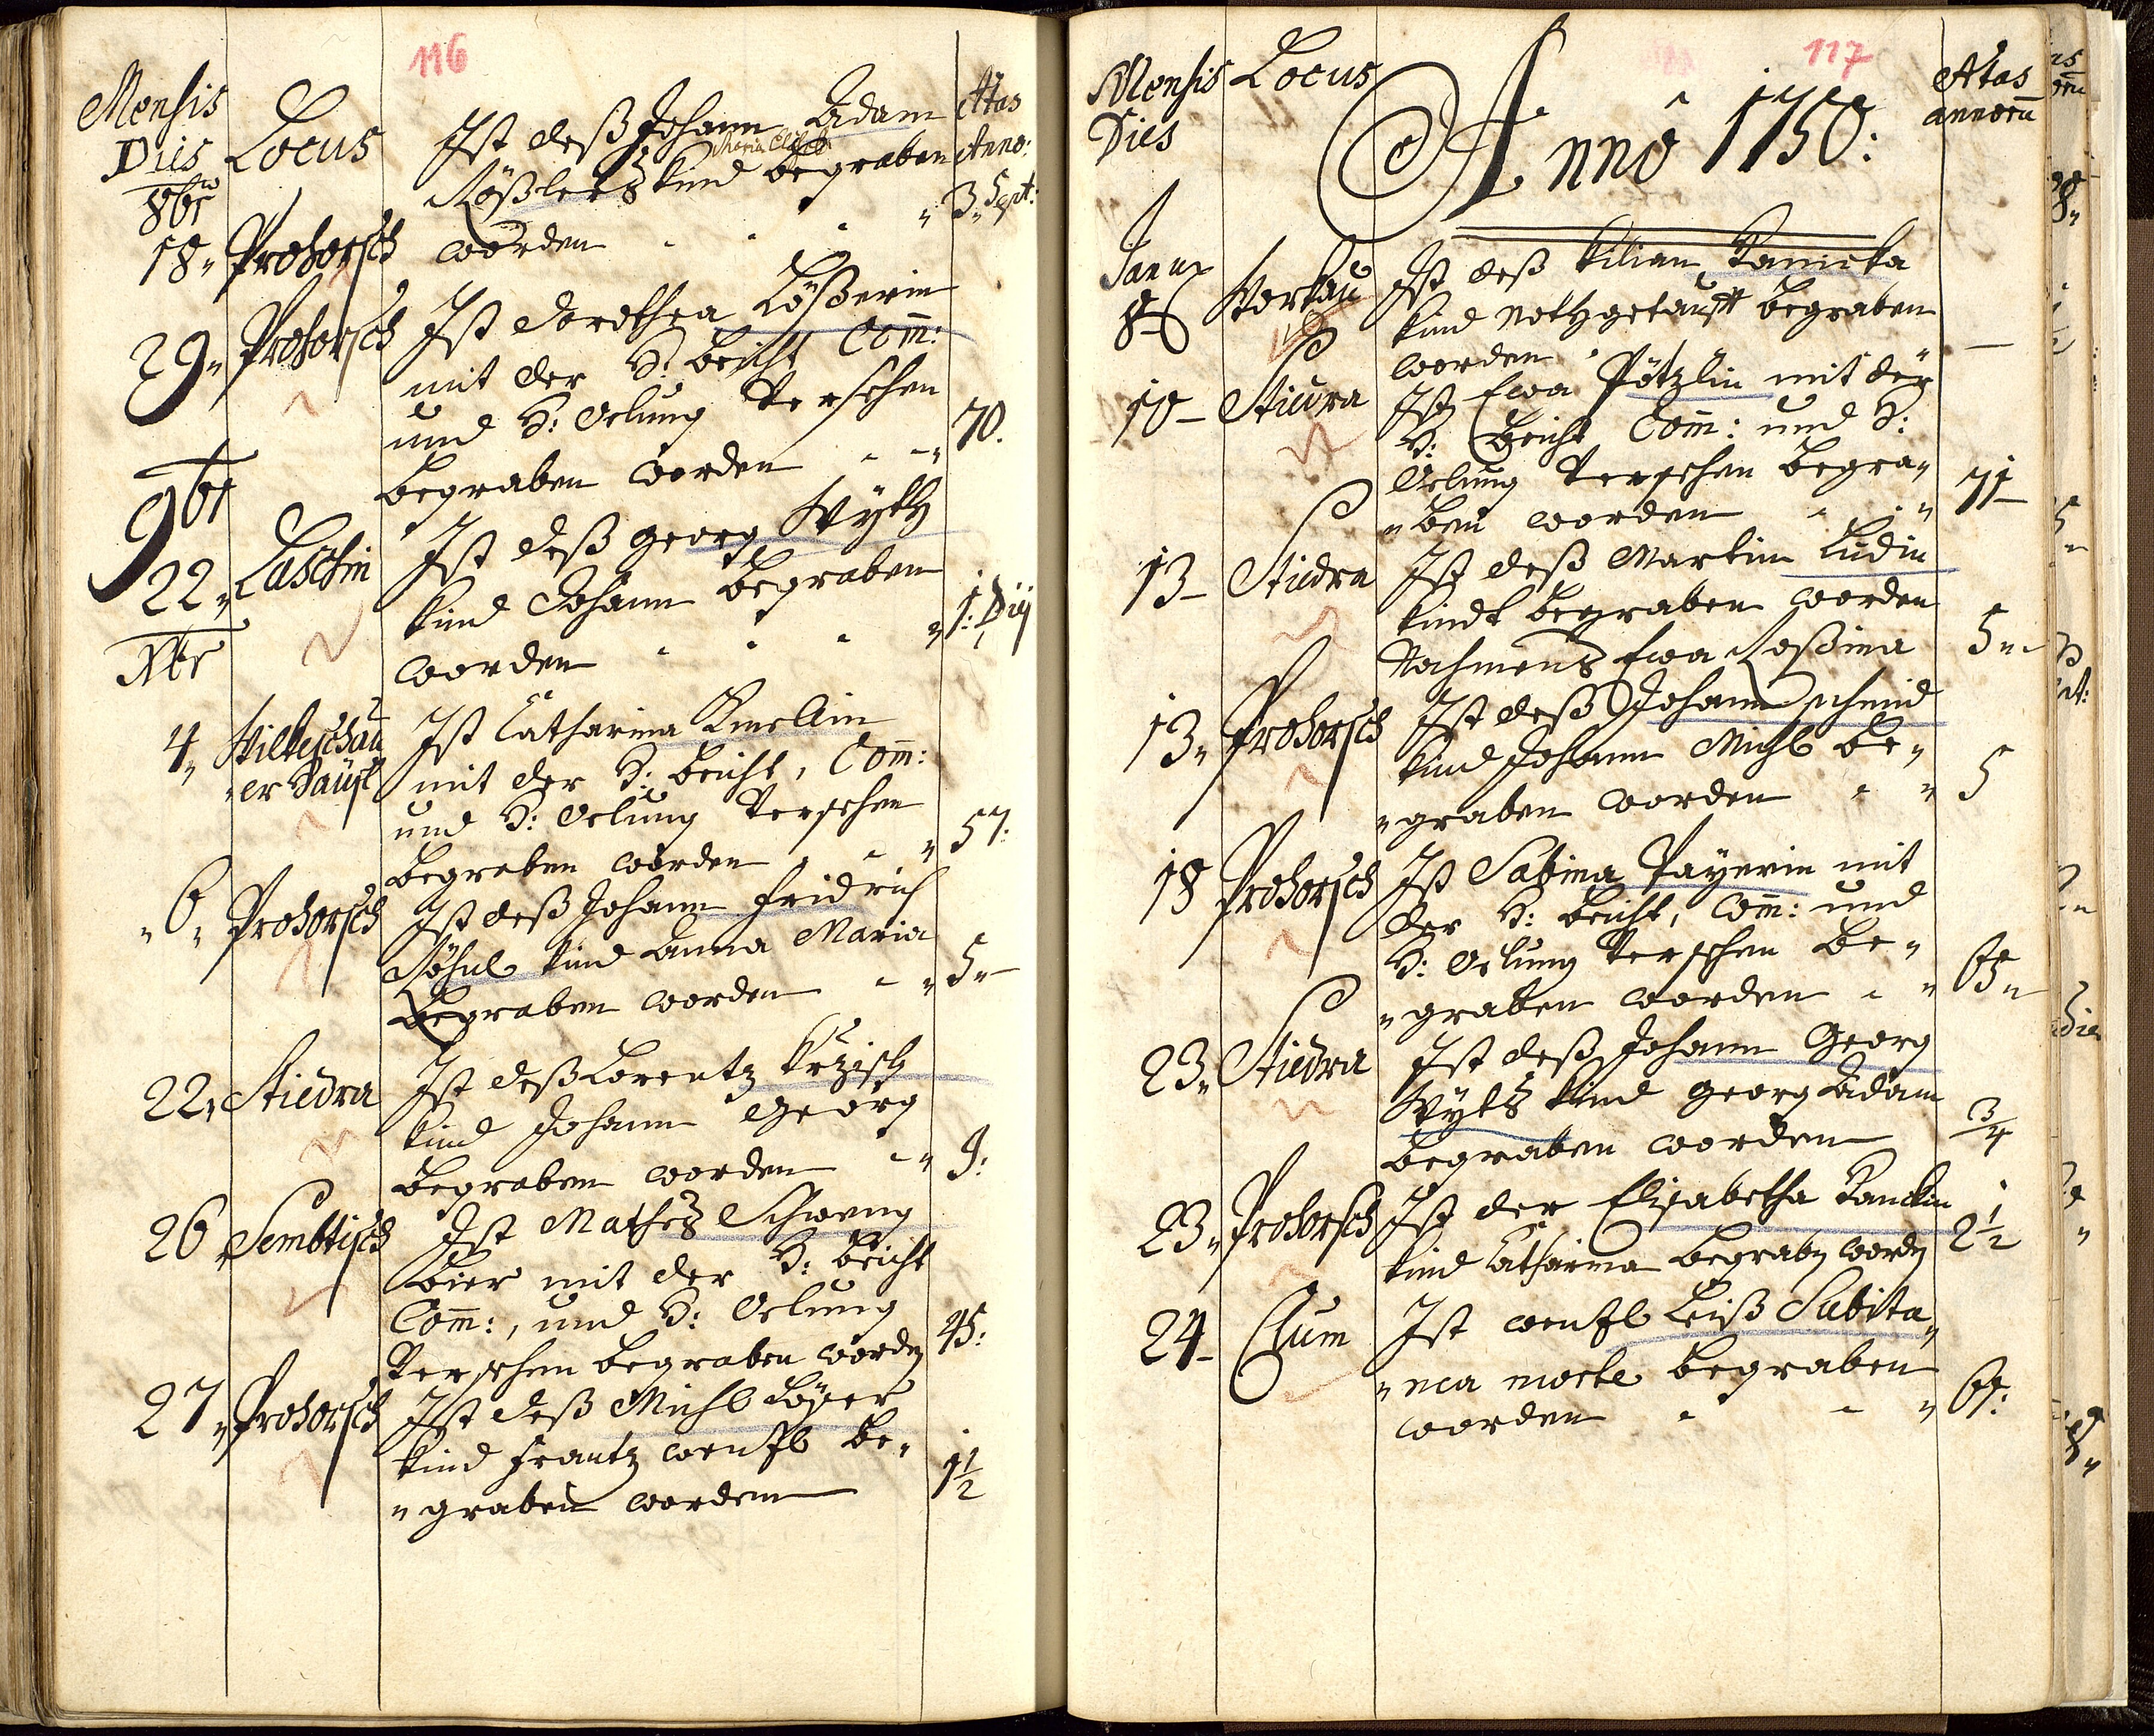 116
Mensis
Dies
Locus
Ætas
Anno:
8br
18„ Prohorsch
Ist deß Johann Adam
Maria Elis
Rößlers Kind begraben
worden „ 3. Sept:
29„ Prohorsch
Ist Dorothea Lößerin
mit der H: beicht Com̄:
und H: Oelung Versehen
begraben worden „ 70.
9br
22„ Laschin
Ist deß Georg Wyth
Kind Johann begraben
worden „ 1: Dij
Xbr
4„ Wilteschau
„er Häüsl
Ist Catharina
mit der H: beicht, Com̄:
und H: Oelung Versehen
begraben worden „ 57:
„6„ Prohorsch
Ist deß Johann Fridrich
Söhnl Kind Anna Maria
begraben worden „ 5„
22„ Stiedra
Ist deß Lorentz
Kind Johann Georg
begraben worden „ 9:
26 Sembtisch
Ist Mathes Schweng
bier mit der H: beicht
Com̄:, und H: Oelung
Versehen begraben worden 45:
27„ Prohorsch
Ist deß Michl
Kind Frantz Wentzl be„
„graben worden 1½
117
Mensis
Dies
Locus
Anno 1750:
Ætas
annorū
Januar
8 Werkau
Ist deß Kilian Ranicka
Kind Nothgetaufft begraben
worden —
10 – Stiedra
Ist Eva Pötzlin mit der
H: Beicht Com̄: und H:
Oelung Versehen begra„
„ben worden „ 71
13 – Stiedra
Ist deß Martin Ludin
Kindt begraben worden
Nahmens Eva Roßina 5„
13„ Prohorsch
Ist deß Johann Schmid
Kind Johann Michl be„
„graben worden „ 5
18 Prohorsch
Ist Sabina Payerin mit
der H: beicht, Com̄: und
H: Oelung Versehen be„
„graben worden „ 63„
23„ Stiedra
Ist deß Johann Georg
Wyts Kind Georg Adam
begraben worden ¾
23„ Prohorsch
Ist der Elisabetha
Kind Catharina begraben worden 2½
24 – Clum
Ist Wentzl Leiß Subita„
„nea morte begraben
worden „